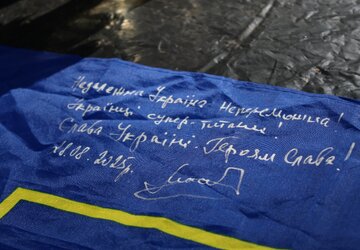 Незалежна Україна Непереможна!
Українці супер-титани!
Слава Україні! Героям Слава!
28.08.2025р.